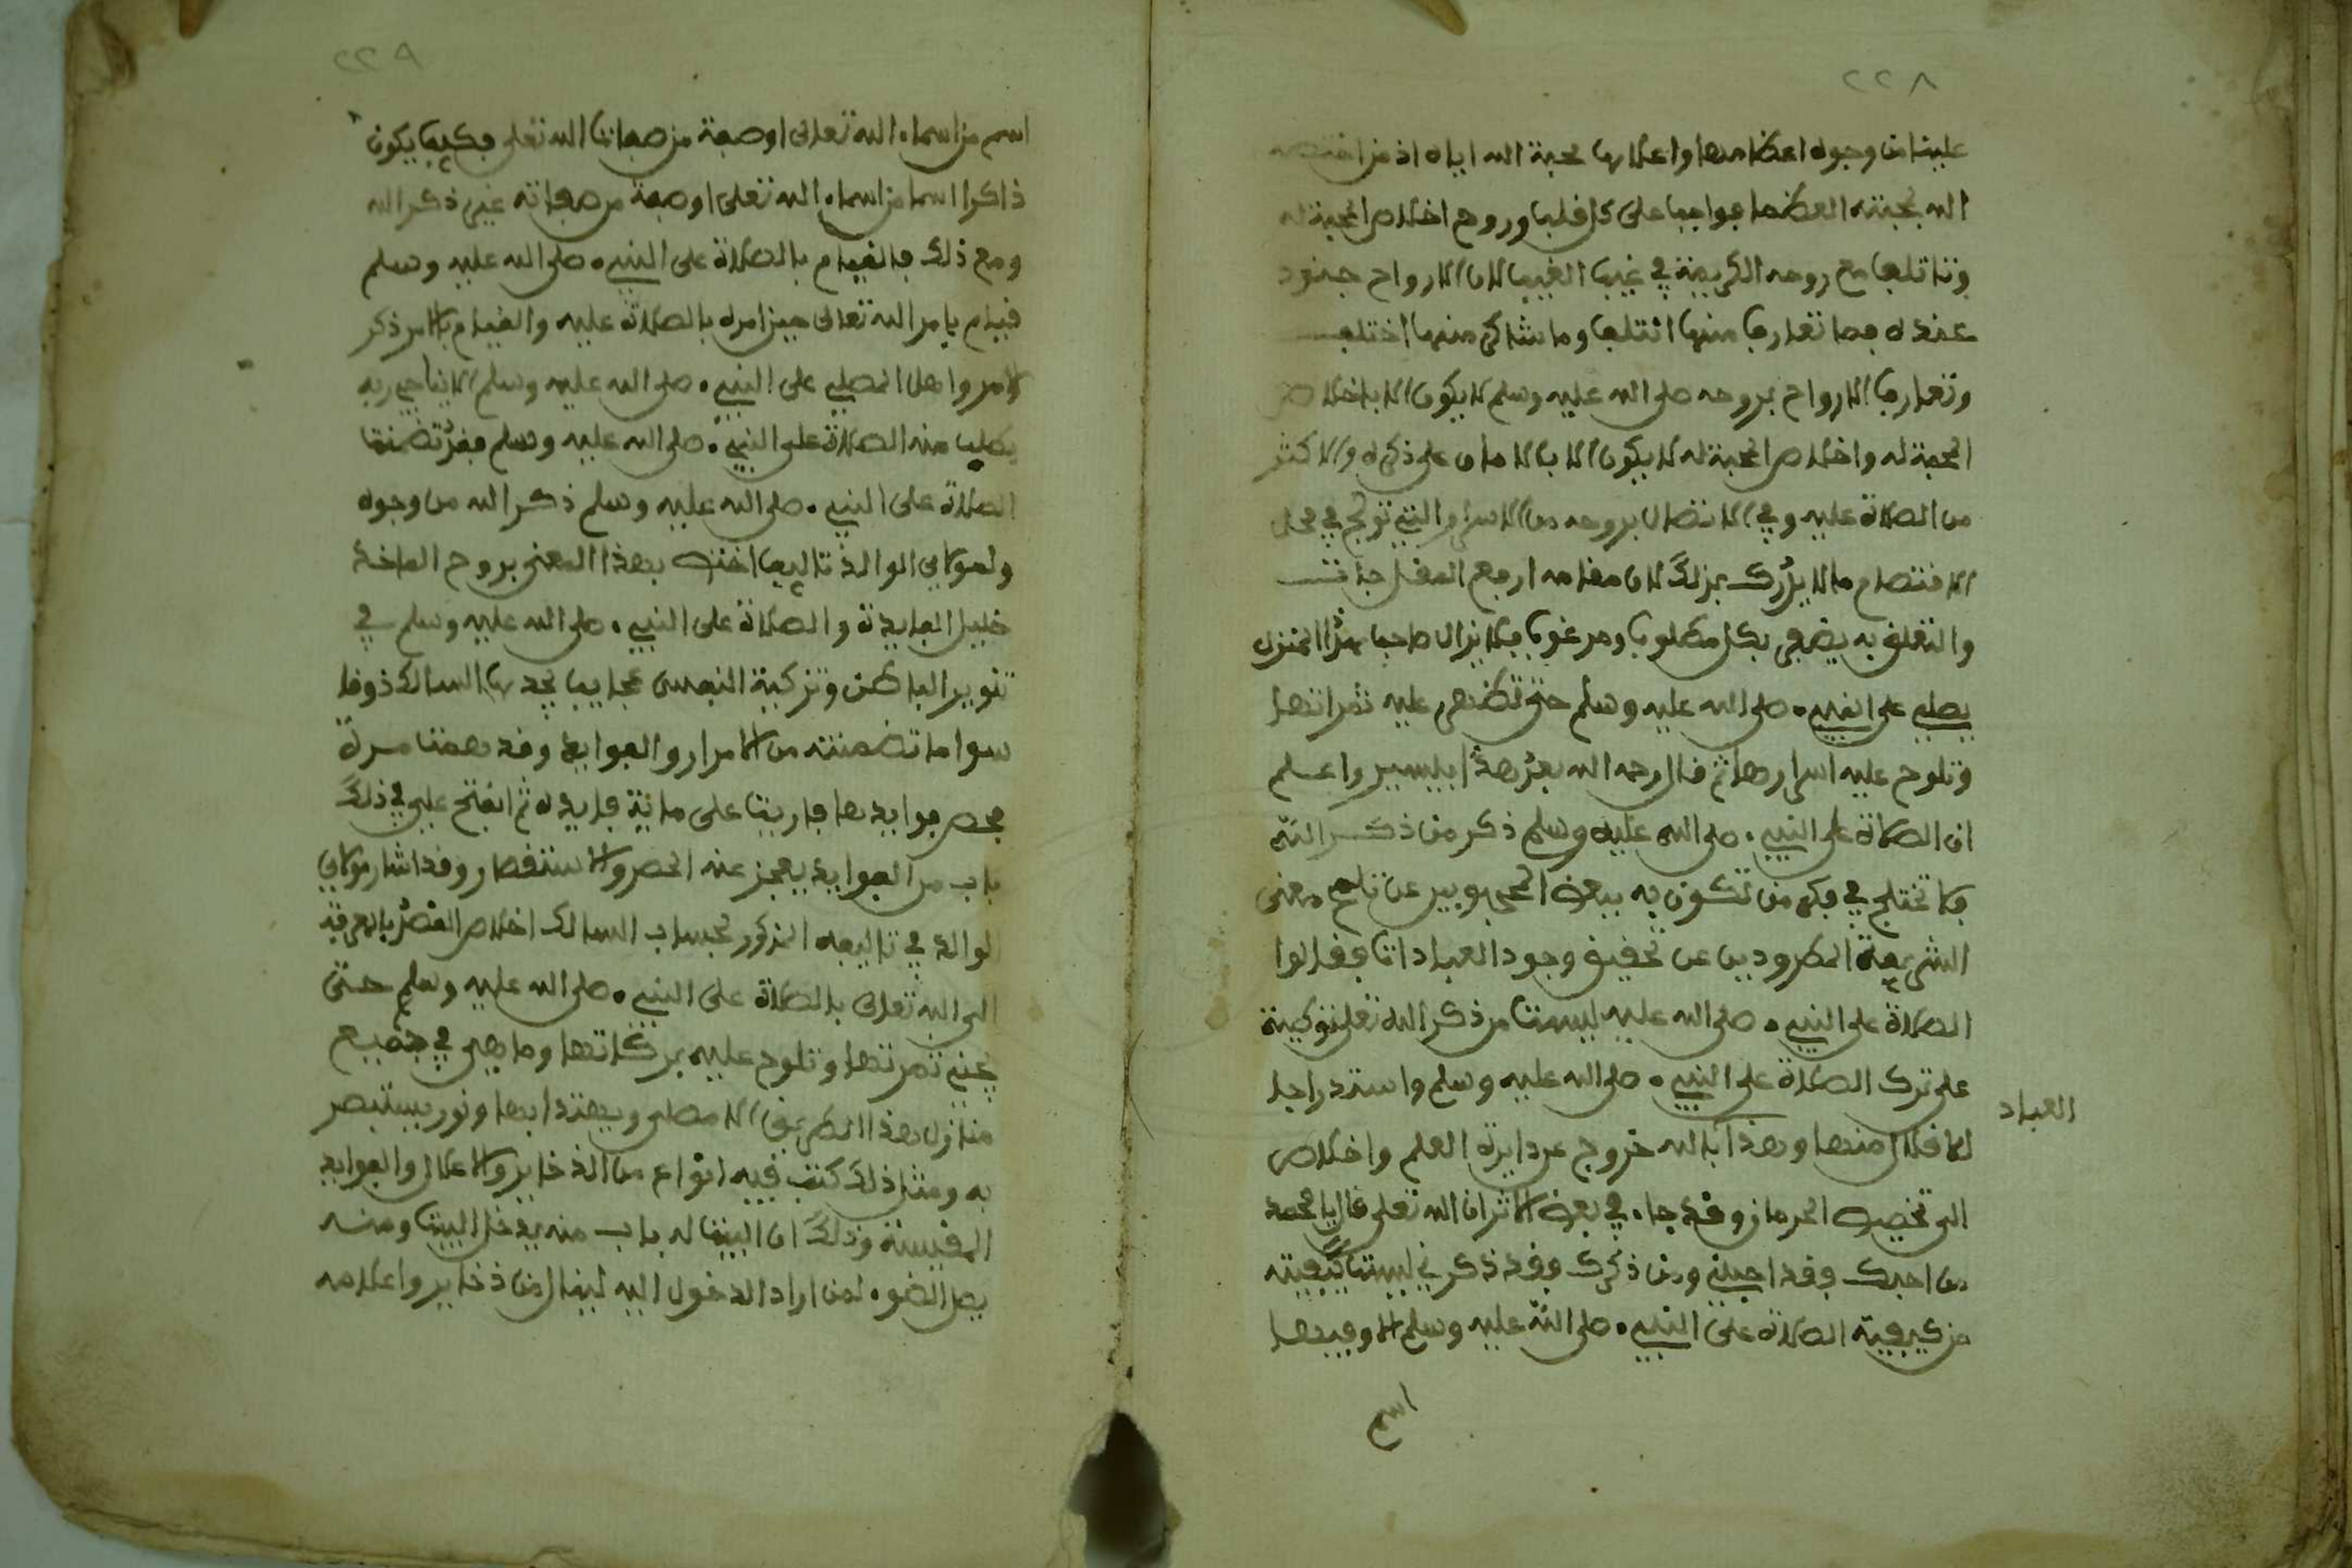 ٢٢٨
علينا من وجوه اعظامها واعلاها محبة الله اياه اذ من اختصه
الله بمحبته العظما فواجب على كل قلب وروح اخلاص المحبة له
وتاتلف مع روحه الكريمة في غيب الغيب لان الارواح جنود
عنده فما تعارف منها ائتلف وما تناكر منها اختلف
وتعارف الارواح بروحه صلى الله عليه وسلم لا يكون الا باخلاص
المحبة له واخلاص المحبة له لا يكون الا بالادمان على ذكره والاكثار
من الصلاة عليه وفي الاتصال بروحه من الاسرار التي تولج في محل
الاقتصام ما لا يدرك بذلك لان مقامه ارفع المقامات
والتعلق به يضفر بكل مطلوب ومرغوب فلا يزال صاحب هذا المنزل
يصلي على النبي صلى الله عليه وسلم حتى تظهر عليه ثمراتها
وتلوح عليه اسرارها ثم قال رحمه الله بعد هذا بيسير واعلم
ان الصلاة على النبي صلى الله عليه وسلم ذكر من ذكر الله
ولا تختلج في وهم من تكون به ببعض المحجوبين عن تلمح معنى
الشريعة المطرودين عن تحقيق وجود العبادات فقالوا
الصلاة على النبي صلى الله عليه ليست من ذكر الله تعلى توطية
على ترك الصلاة على النبي صلى الله عليه وسلم واستدراجا
العباد
لاقلال منها وهذا بالله خروج عن دايرة العلم واخلاص
الى تحصيل الحرمان وقد جاء في بعض الاثر ان الله تعلى قال يا محمد
من احبك فقد احبني ومن ذكرك فقد ذكرني ليست كيفية
من كيفية الصلاة على النبي صلى الله عليه وسلم الا وفيها
اسم
٢٢٩
اسم من اسماء الله تعالى او صفة من صفات الله تعلى فكيف يكون
ذاكرا اسما من اسماء الله تعلى او صفة من صفاته غير ذكر الله
ومع ذلك فالقيام بالصلاة على النبي صلى الله عليه وسلم
قيام بامر الله تعالى حين امره بالصلاة عليه والقيام بالامر ذكر
الامر وهل المصلي على النبي صلى الله عليه وسلم الا يناجي ربه
يطلب منه الصلاة على النبي صلى الله عليه وسلم فقد تضمنت
الصلاة على النبي صلى الله عليه وسلم ذكر الله من وجوه
ولمولاي الوالد تاليف اختص بهذا المعنى بروح الماخذ
جليل الفايدة والصلاة على النبي صلى الله عليه وسلم في
تنوير الباطن وتزكية النفس عجايب يجدها السالك ذوقا
سوا ما تضمنته من الاسرار والفوايد وقد هممت مرة
بحصر فوايدها فاربيت على ماية فايدة ثم انفتح علي في ذلك
باب من الفوايد يعجز عنه الحصر والاستقصار وقد اشار مولاي
الوالد في تاليفه المذكور بحساب السالك اخلاص القصد بالمعرفة
الى الله تعالى بالصلاة على النبي صلى الله عليه وسلم حتى
يجني ثمرتها وتلوح عليه بركاتها وما هي في جميع
منازل هذا الطريق الا مصلى ويهتدا بها ونور يستبصر
به ومثل ذلك كبيت فيه انواع من الذخاير والاعمال والفوايد
النفيسة وذلك ان البيت له باب منه يدخل البيت ومنه
يصل الضوء لمن اراد الدخول اليه لينال من ذخايره واعلامه